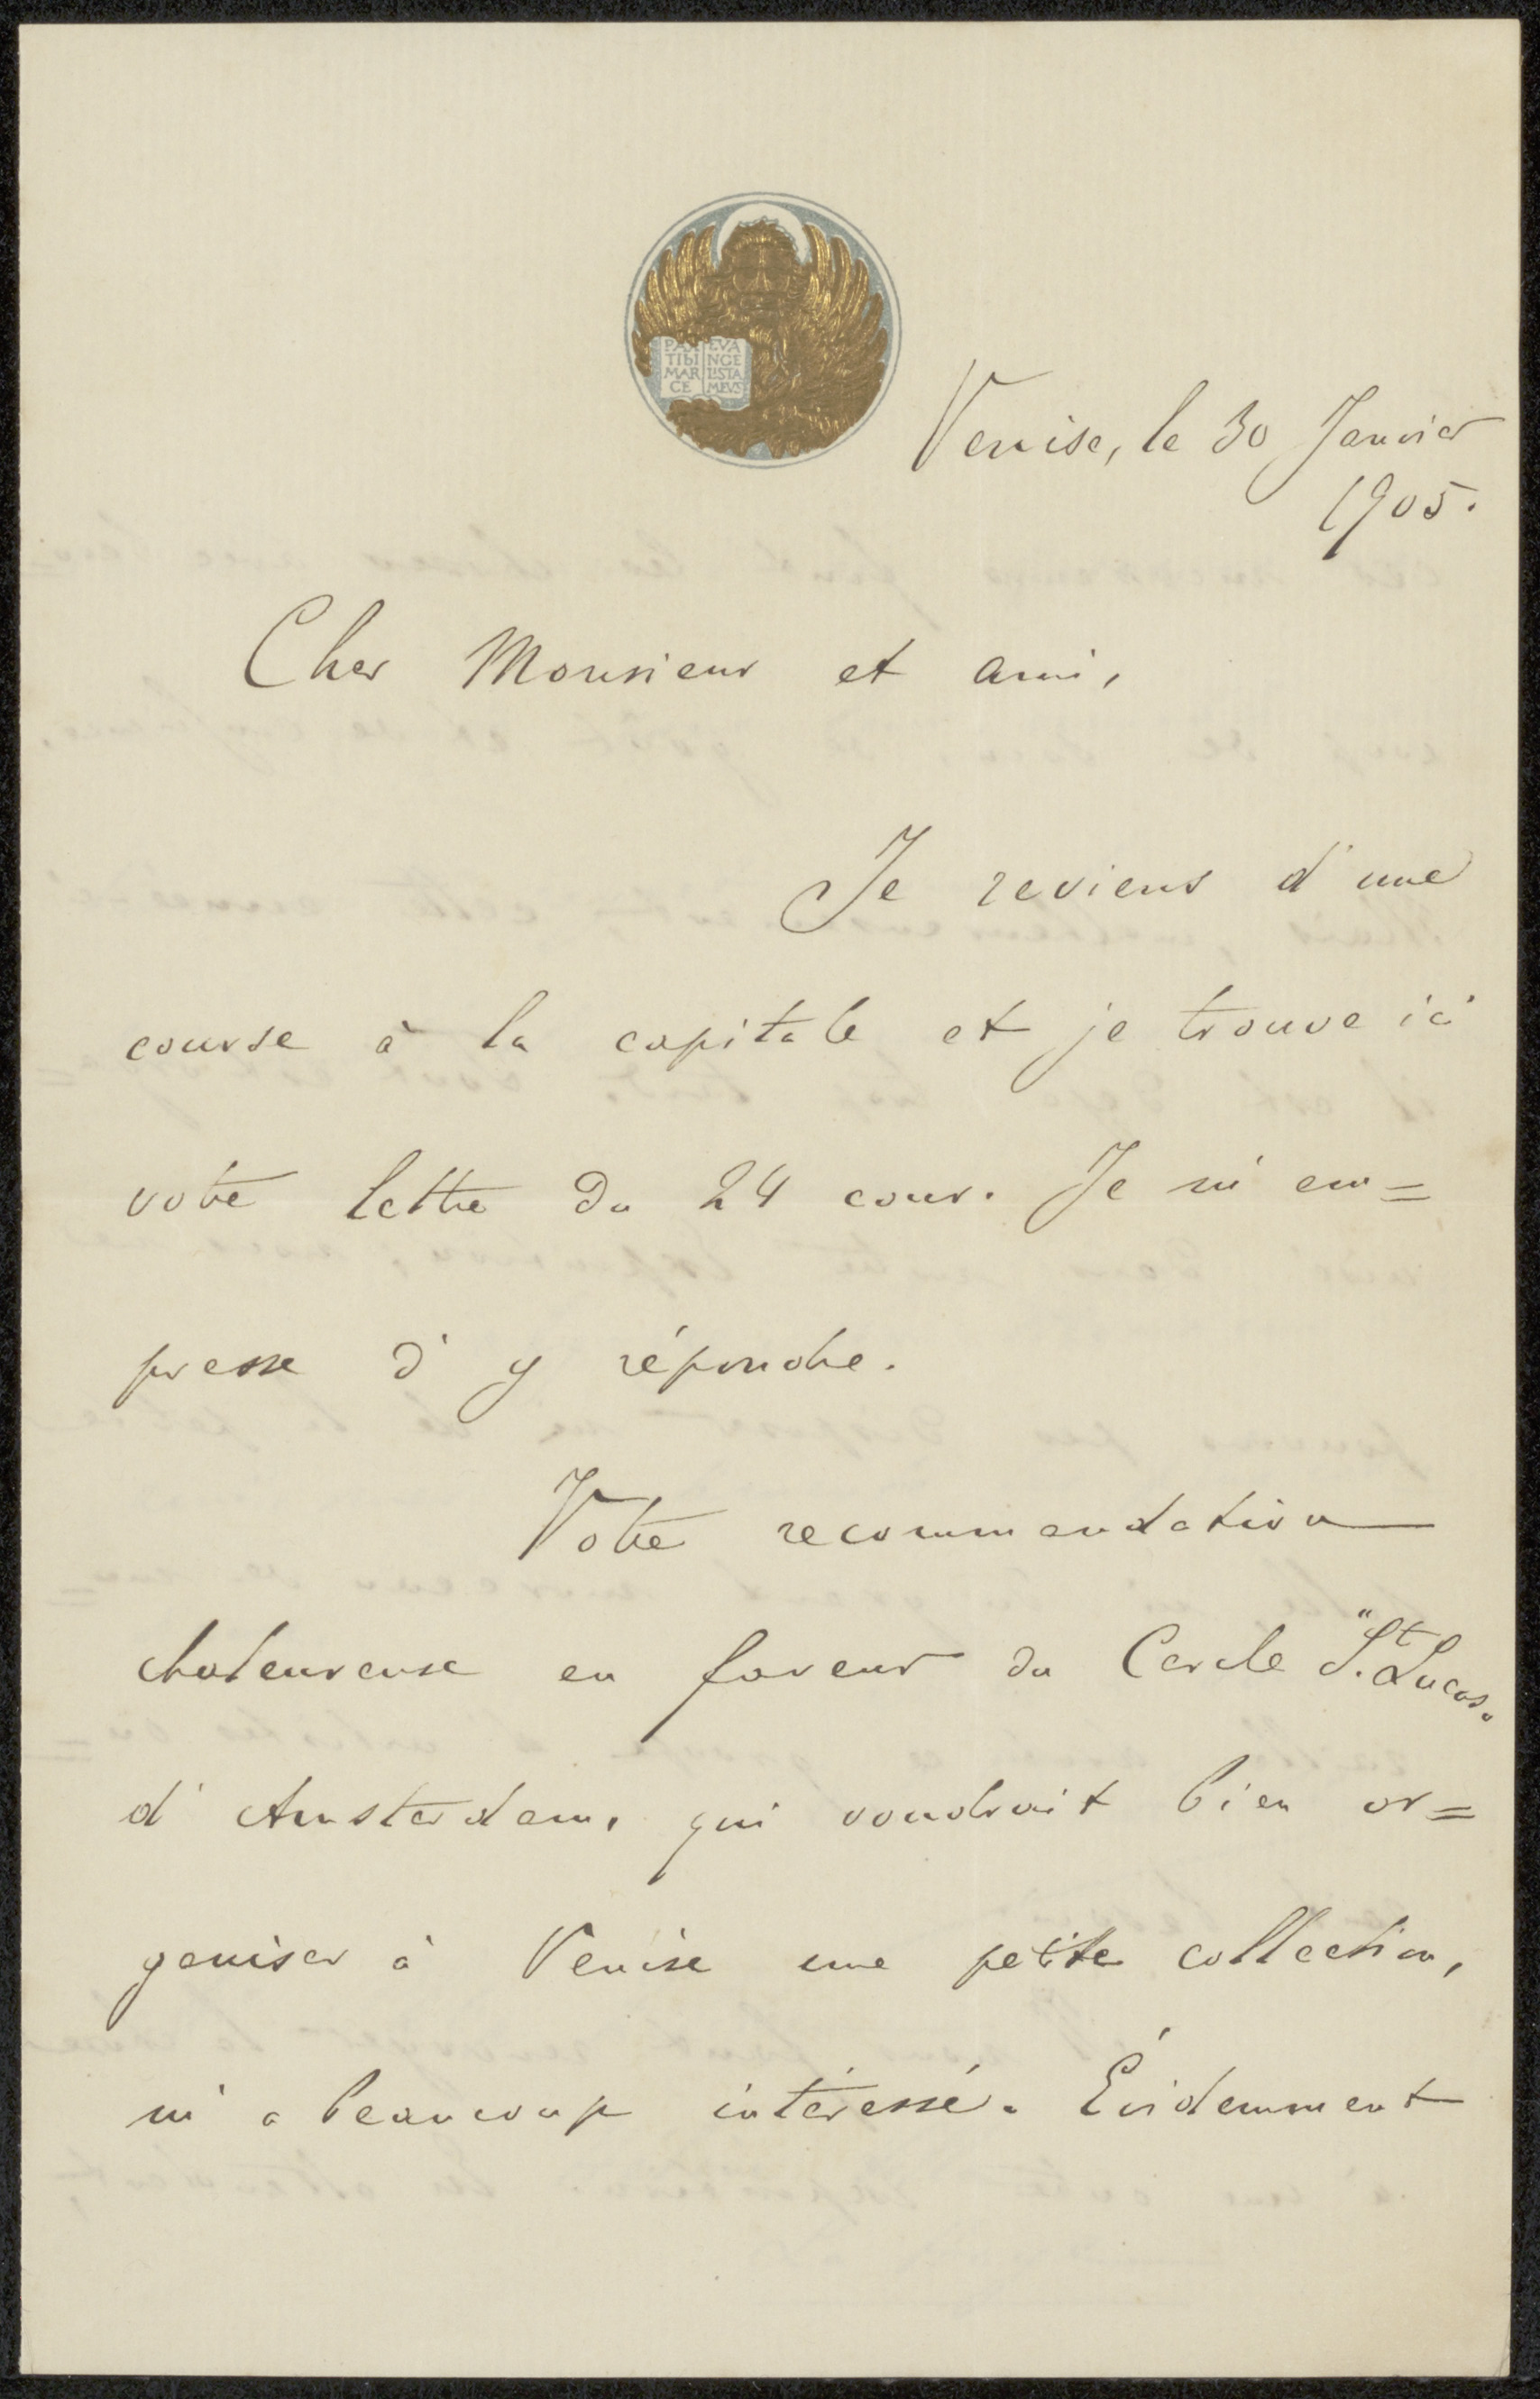 PAX EVA
TIBI NGE
MAR LISTA
CE MEVS
Venise, le 30 Janvier
1905.
Cher Monsieur et ami,
Je reviens d'une
course à la capitale et je trouve ici
votre lettre du 24 cour. Je m'em=
presse d'y répondre.
Votre recommandation
chaleureuse en faveur du Cercle "St. Lucas„
d'Amsterdam, qui voudrait bien or=
ganiser à Venise une petite collection,
m'a beaucoup intéressé. Évidemment